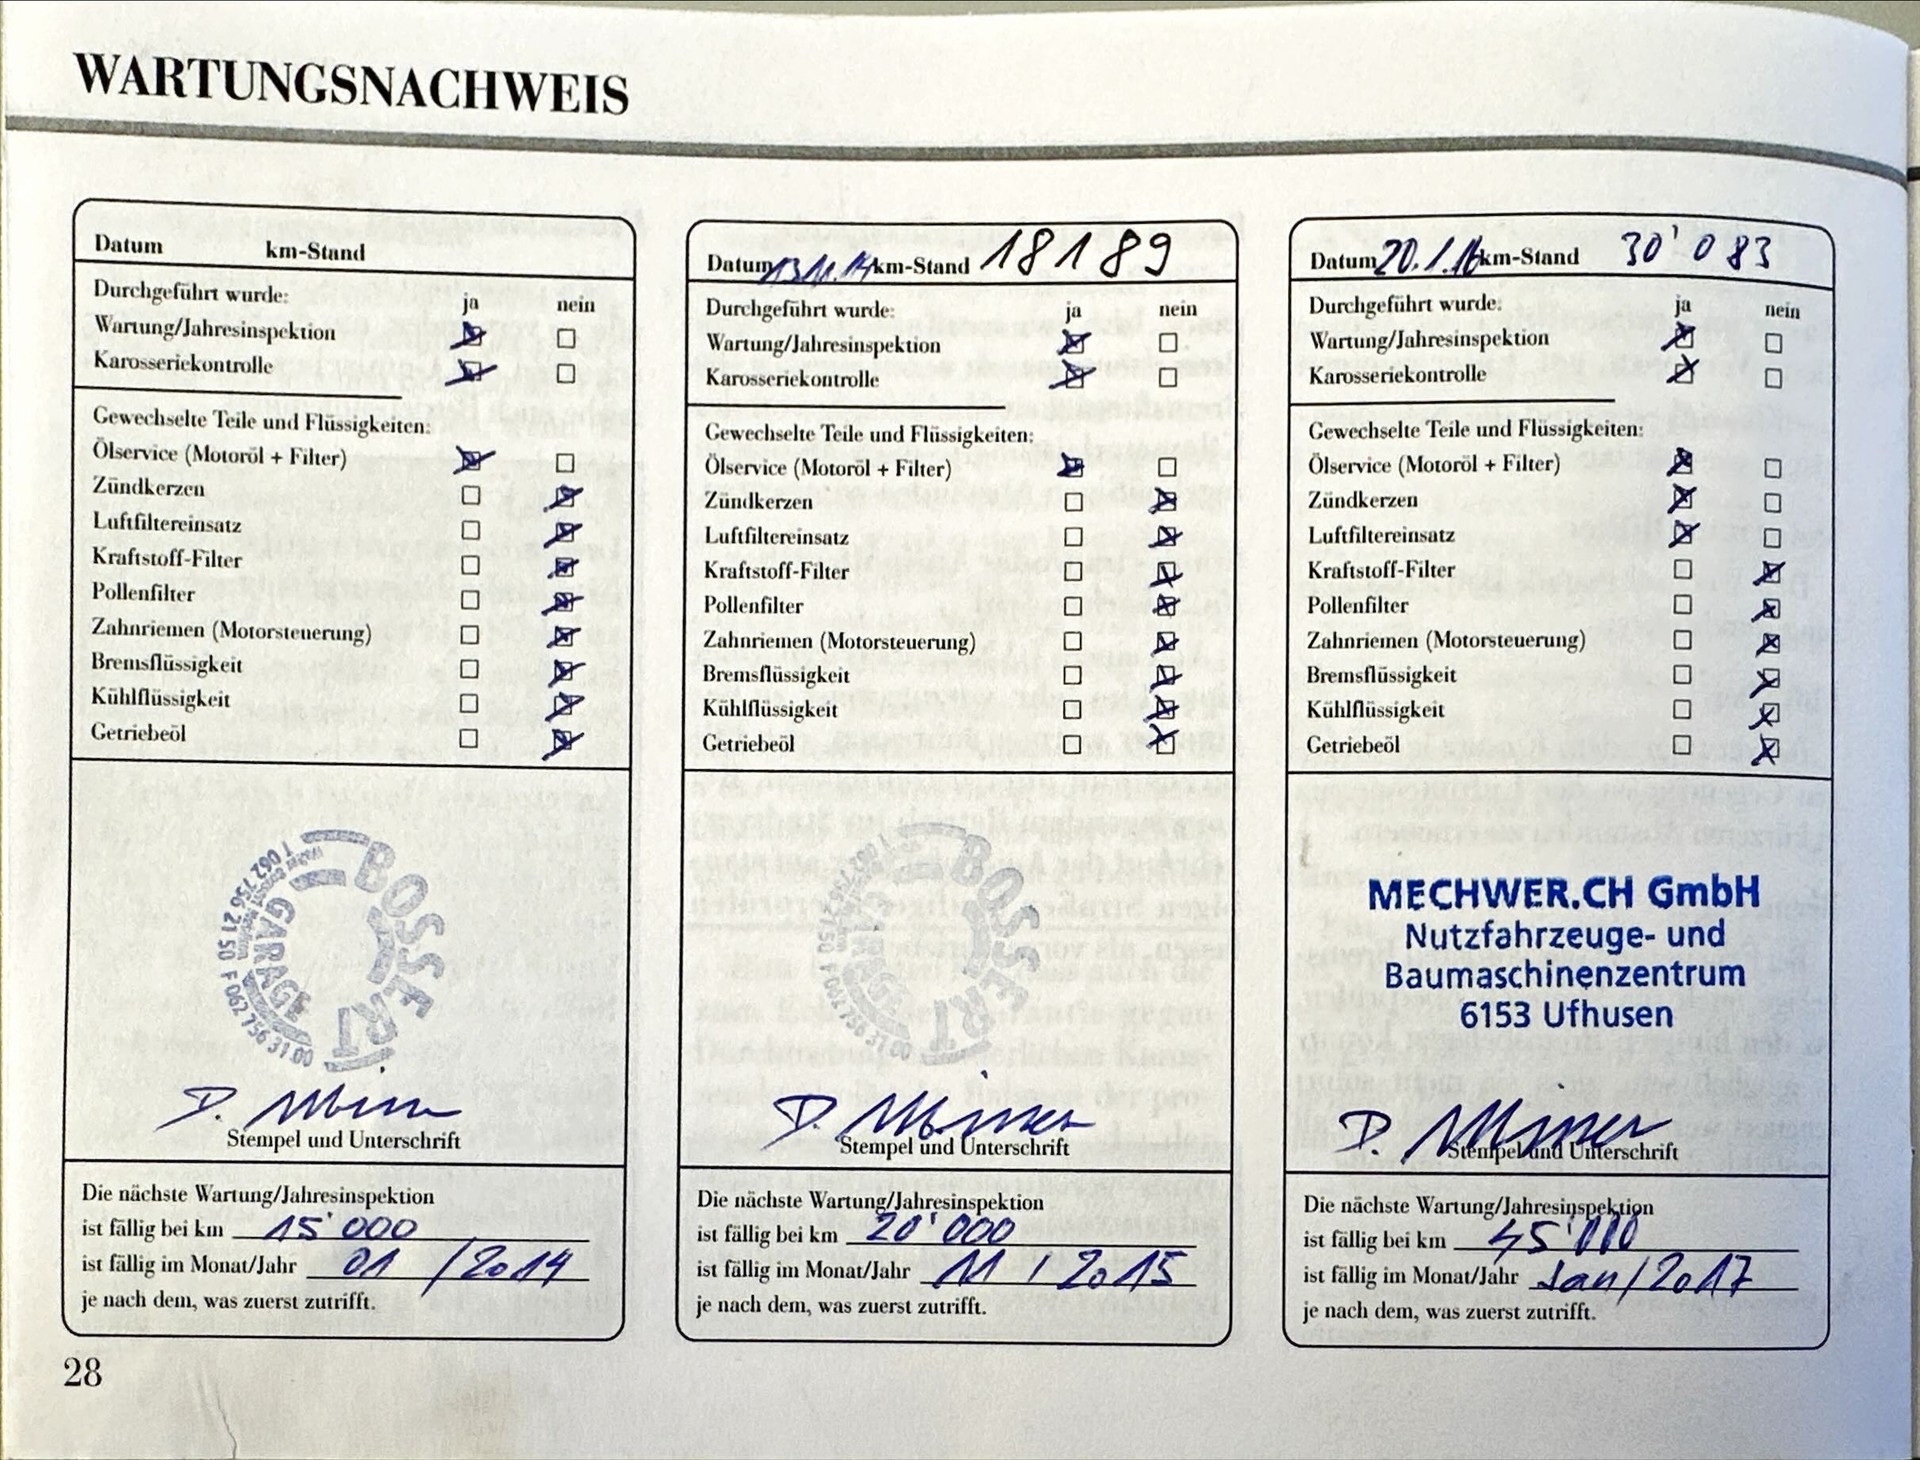 WARTUNGSNACHWEIS
Datum km-Stand
Durchgeführt wurde: ja nein
Wartung/Jahresinspektion
Karosseriekontrolle
Gewechselte Teile und Flüssigkeiten:
Ölservice (Motoröl + Filter)
Zündkerzen
Luftfiltereinsatz
Kraftstoff-Filter
Pollenfilter
Zahnriemen (Motorsteuerung)
Bremsflüssigkeit
Kühlflüssigkeit
Getriebeöl
BOSSERT
GARAGE
T 062 756 21 50 F 062 756 31 00
D.
Stempel und Unterschrift
Die nächste Wartung/Jahresinspektion
ist fällig bei km 15'000
ist fällig im Monat/Jahr 01 / 2014
je nach dem, was zuerst zutrifft.
28
Datum 13.11.14 km-Stand 18189
Durchgeführt wurde: ja nein
Wartung/Jahresinspektion
Karosseriekontrolle
Gewechselte Teile und Flüssigkeiten:
Ölservice (Motoröl + Filter)
Zündkerzen
Luftfiltereinsatz
Kraftstoff-Filter
Pollenfilter
Zahnriemen (Motorsteuerung)
Bremsflüssigkeit
Kühlflüssigkeit
Getriebeöl
BOSSERT
D.
Stempel und Unterschrift
Die nächste Wartung/Jahresinspektion
ist fällig bei km 20'000
ist fällig im Monat/Jahr 11 / 2015
je nach dem, was zuerst zutrifft.
Datum 20.1.16 km-Stand 30'083
Durchgeführt wurde: ja nein
Wartung/Jahresinspektion
Karosseriekontrolle
Gewechselte Teile und Flüssigkeiten:
Ölservice (Motoröl + Filter)
Zündkerzen
Luftfiltereinsatz
Kraftstoff-Filter
Pollenfilter
Zahnriemen (Motorsteuerung)
Bremsflüssigkeit
Kühlflüssigkeit
Getriebeöl
MECHWER.CH GmbH
Nutzfahrzeuge- und
Baumaschinenzentrum
6153 Ufhusen
D.
Stempel und Unterschrift
Die nächste Wartung/Jahresinspektion
ist fällig bei km 45'000
ist fällig im Monat/Jahr Jan/2017
je nach dem, was zuerst zutrifft.